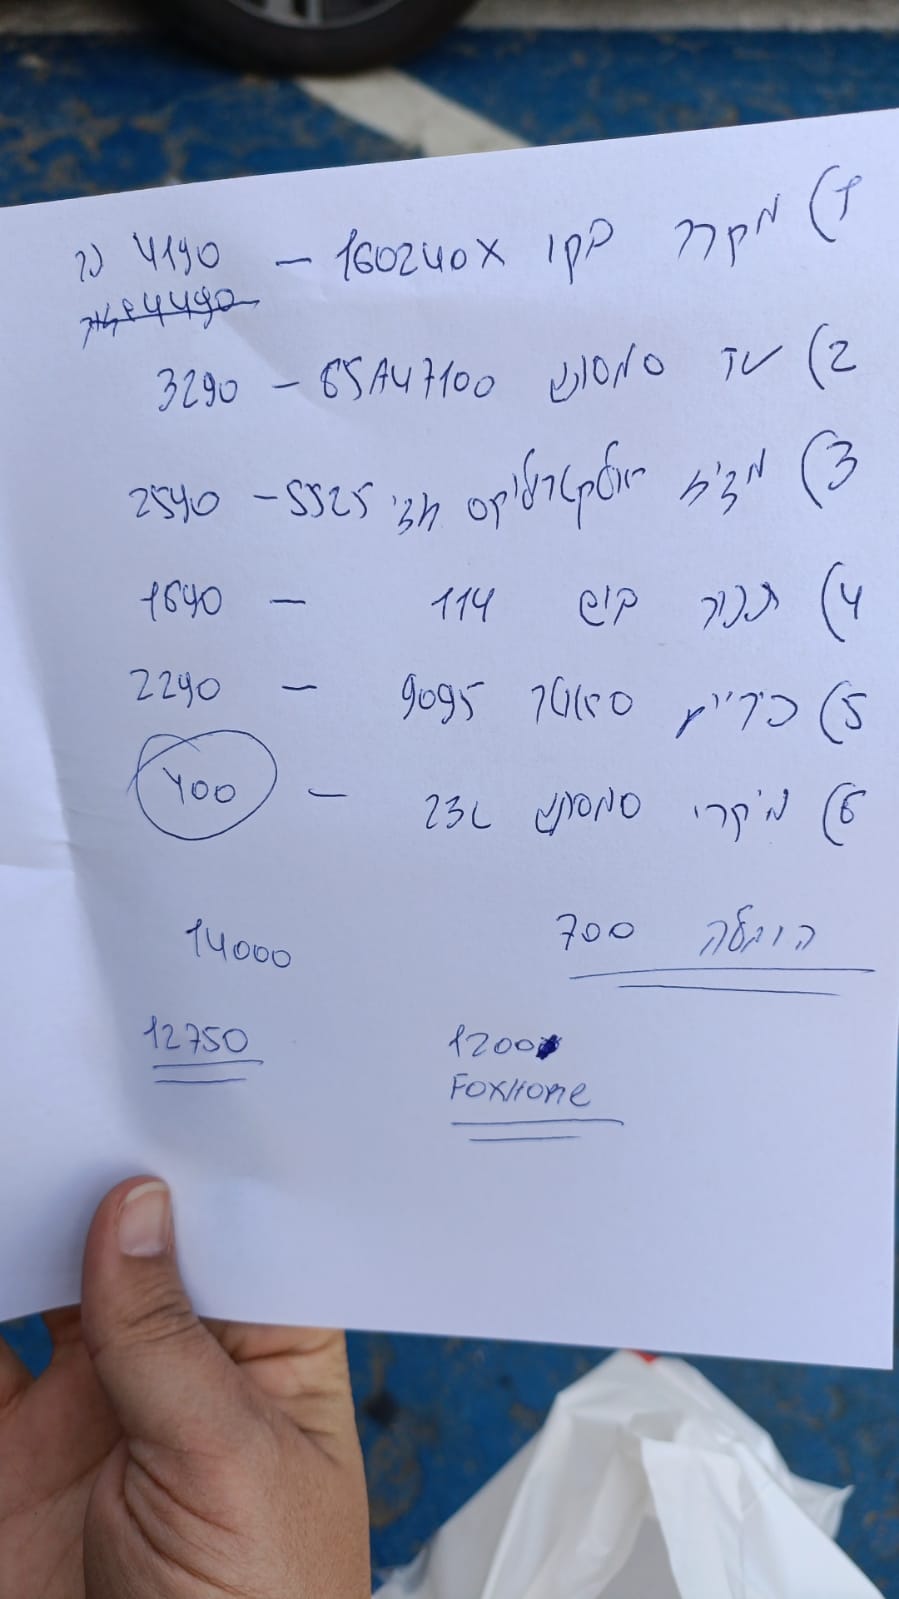 1) מקרר בקו 160240X - 4190 לבן
4490
2) טו סמסונג 65AU7100 - 3290
3) מדיח אלקטרולוקס חצי 5525 - 2590
4) תנור בוש 114 - 1690
5) כיריים סאוטר 9095 - 2290
6) מיקרו סמסונג 23L - 400
הובלה 700
14000
12750
1200
FoxHome